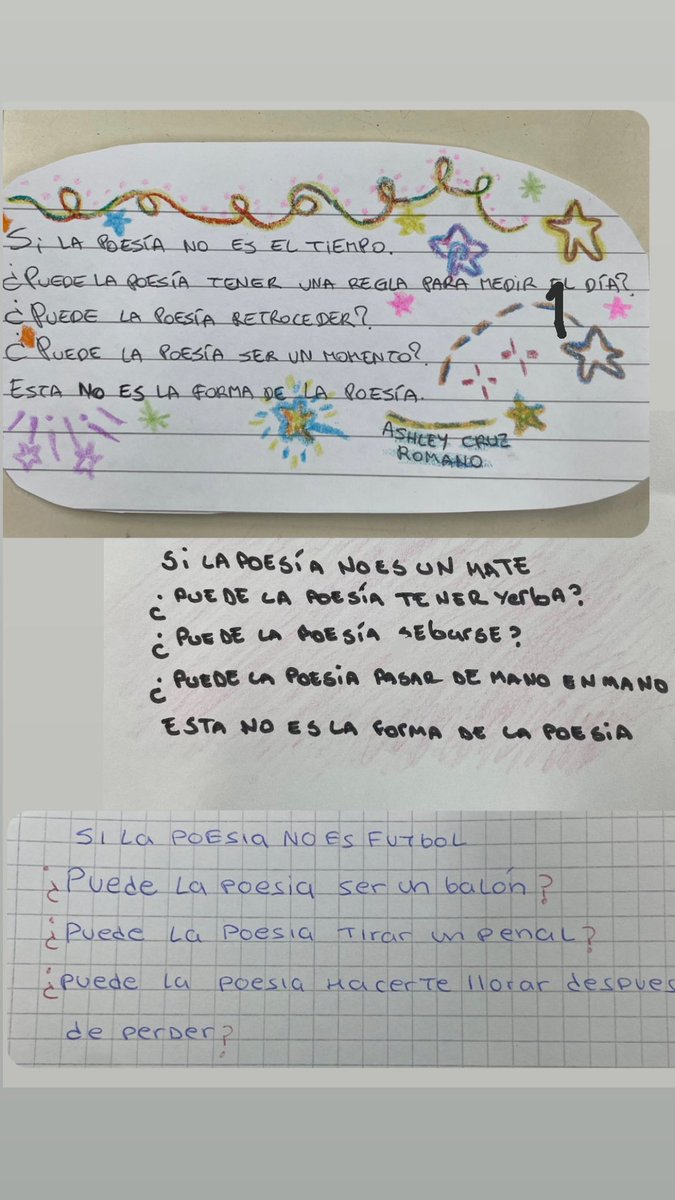 Si LA POESÍA NO ES EL TIEMPO.
¿PUEDE LA POESÍA TENER UNA REGLA PARA MEDIR EL DÍA?
1
¿PUEDE LA POESÍA RETROCEDER?
¿PUEDE LA POESÍA SER UN MOMENTO?
ESTA NO ES LA FORMA DE LA POESÍA.
ASHLEY CRUZ
ROMANO
Si LA POESÍA NO ES UN MATE
¿PUEDE LA POESÍA TENER YerbA?
¿PUEDE LA POESÍA SEbARSE?
¿PUEDE LA POESIA PASAR DE MANO EN MANO
ESTA NO ES LA FORMA DE LA POESIA
SI La POESIa NO ES FUTbOL
¿Puede La poesia ser un balón?
¿Puede La Poesia Tirar un penal?
¿puede La poesia Hacerte llorar despues
de perder?